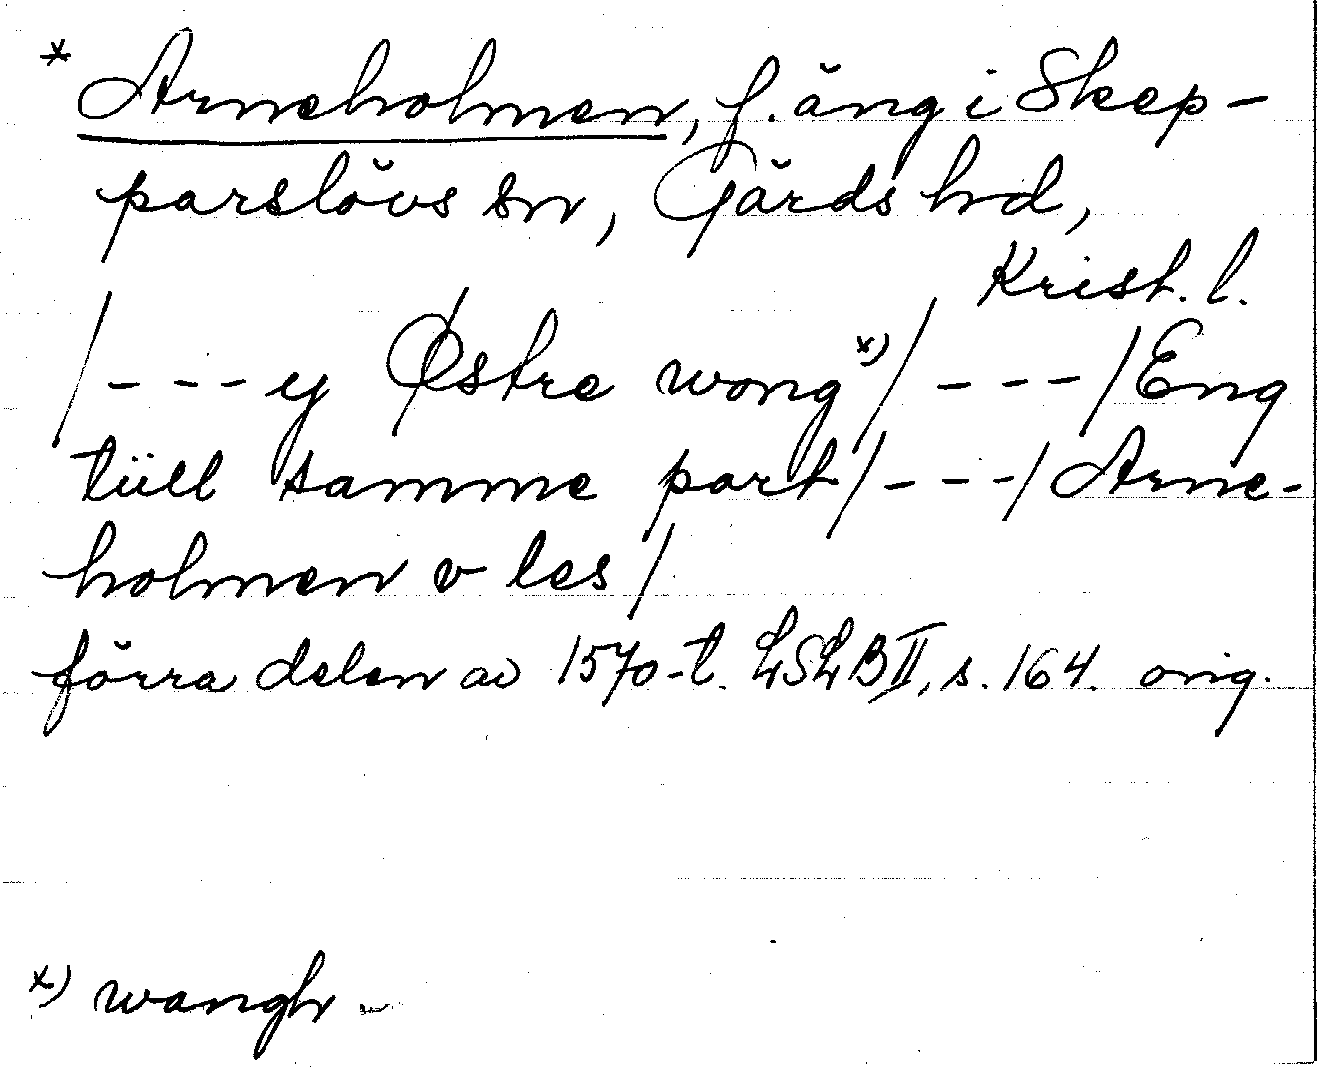 * Arneholmen, f. äng i Skep-
parslövs sn, Gärds hd,
Krist. l.
/---y Østre wong x)/---/Eng
tüll samme part/---/Arne-
holmen v les/
förra delen av 1570-t. LSLB II, s. 164. orig.
x) wangh